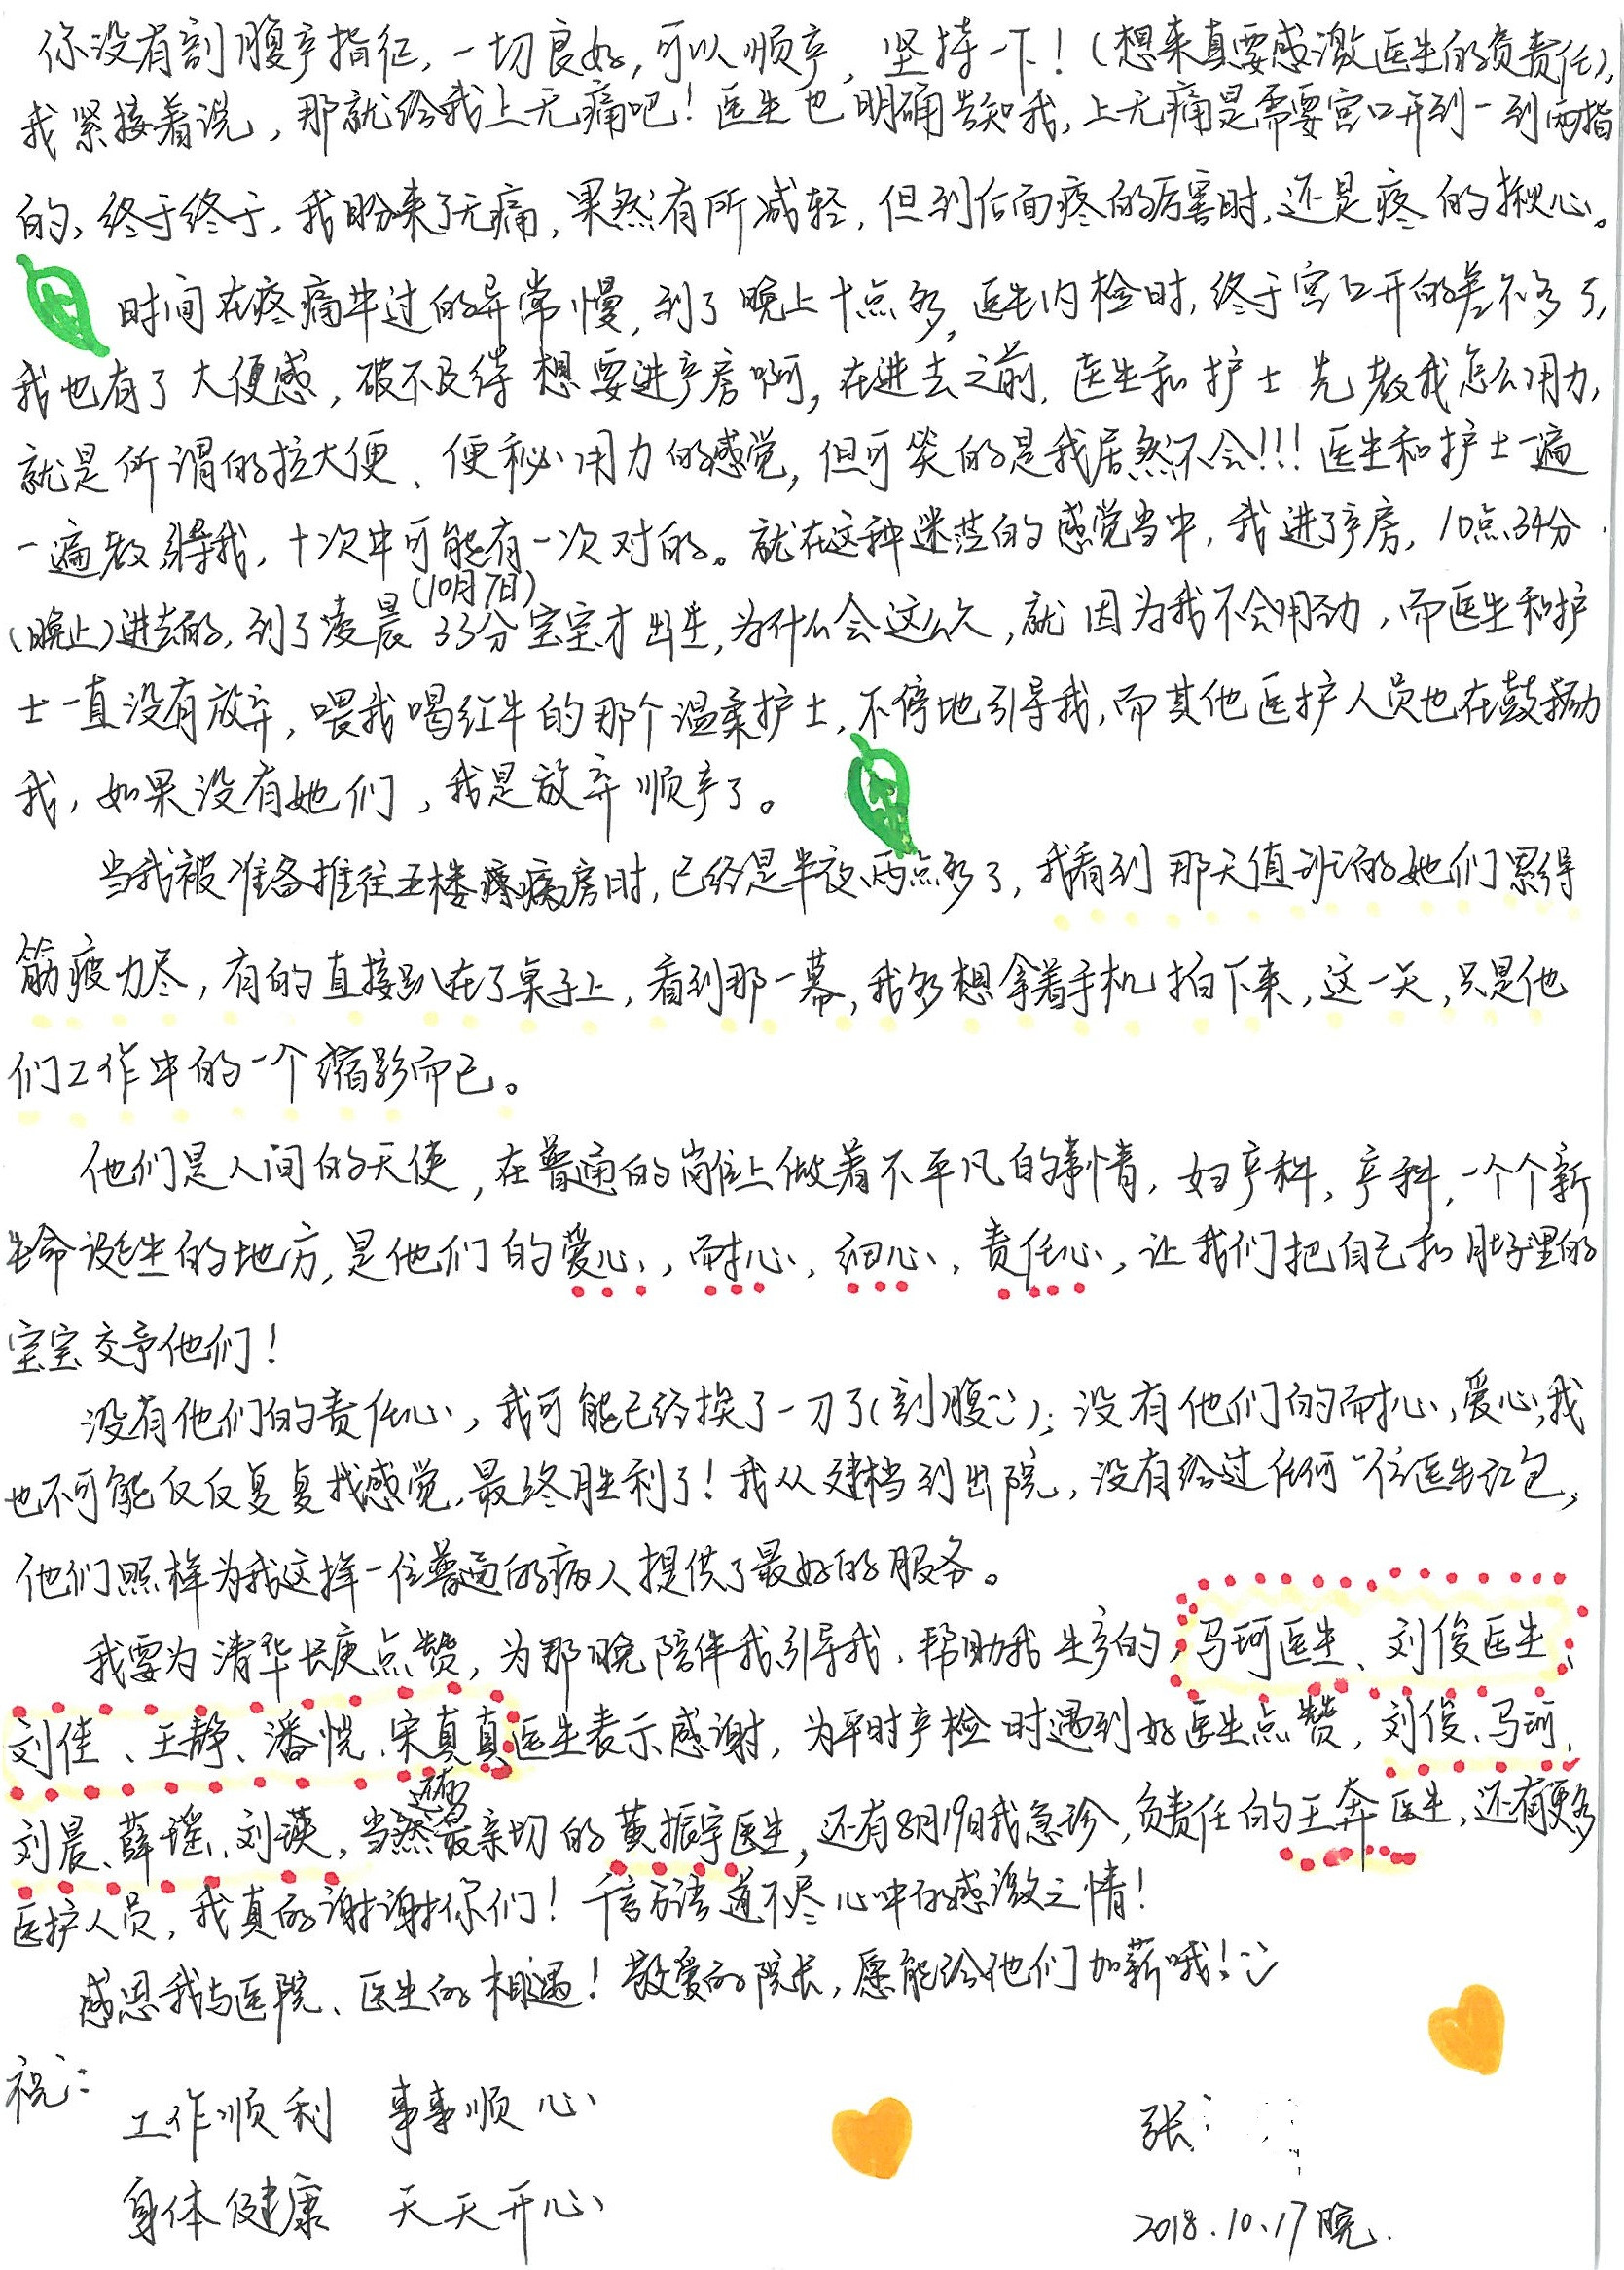 你没有剖腹产指征，一切良好，可以顺产，坚持一下！（想来真要感激医生的负责任），
我紧接着说，那就给我上无痛吧！医生也明确告知我，上无痛是需要宫口开到一到两指
的，终于终于，我盼来了无痛，果然有所减轻，但到后面疼的厉害时，还是疼的揪心。
时间在疼痛中过的异常慢，到了晚上十点多，医生内检时，终于宫口开的差不多了，
我也有了大便感，破不及待想要进产房啊，在进去之前，医生和护士先教我怎么用力，
就是所谓的拉大便、便秘用力的感觉，但可笑的是我居然不会!!!医生和护士一遍
一遍教导我，十次中可能有一次对的。就在这种迷茫的感觉当中，我进了产房，10点34分
(10月7日)
（晚上）进去的，到了凌晨33分宝宝才出生，为什么会这么久，就因为我不会用劲，而医生和护
士一直没有放弃，喂我喝红牛的那个温柔护士，不停地引导我，而其他医护人员也在鼓励
我，如果没有她们，我是放弃顺产了。
当我被准备推往五楼病房时，已经是半夜两点多了，我看到那天值班的她们累得
筋疲力尽，有的直接趴在了桌子上，看到那一幕，我多想拿着手机拍下来，这一天，只是他
们工作中的一个缩影而已。
他们是人间的天使，在普通的岗位上做着不平凡的事情，妇产科，产科，一个个新
生命诞生的地方，是他们的爱心、耐心、细心、责任心，让我们把自己和肚子里的
宝宝交予他们！
没有他们的责任心，我可能已经挨了一刀了（剖腹）；没有他们的耐心，爱心，我
也不可能反反复复找感觉，最终胜利了！我从建档到出院，没有给过任何一位医生红包，
他们照样为我这样一位普通的病人提供了最好的服务。
我要为清华长庚点赞，为那晚陪伴我引导我、帮助我生产的，马珂医生、刘俊医生、
刘佳、王静、潘恍、宋真真医生表示感谢，为平时产检时遇到好医生点赞，刘俊、马珂、
还有
刘晨、薛瑶、刘瑛，当然最亲切的黄振宇医生，还有8月19日我急诊，负责任的王奔医生，还有更多
医护人员，我真的谢谢你们！千言万语道不尽心中的感激之情！
感恩我与医院、医生的相遇！敬爱的院长，愿能给他们加薪哦！
祝：
工作顺利 事事顺心
身体健康 天天开心
张
2018.10.17晚.